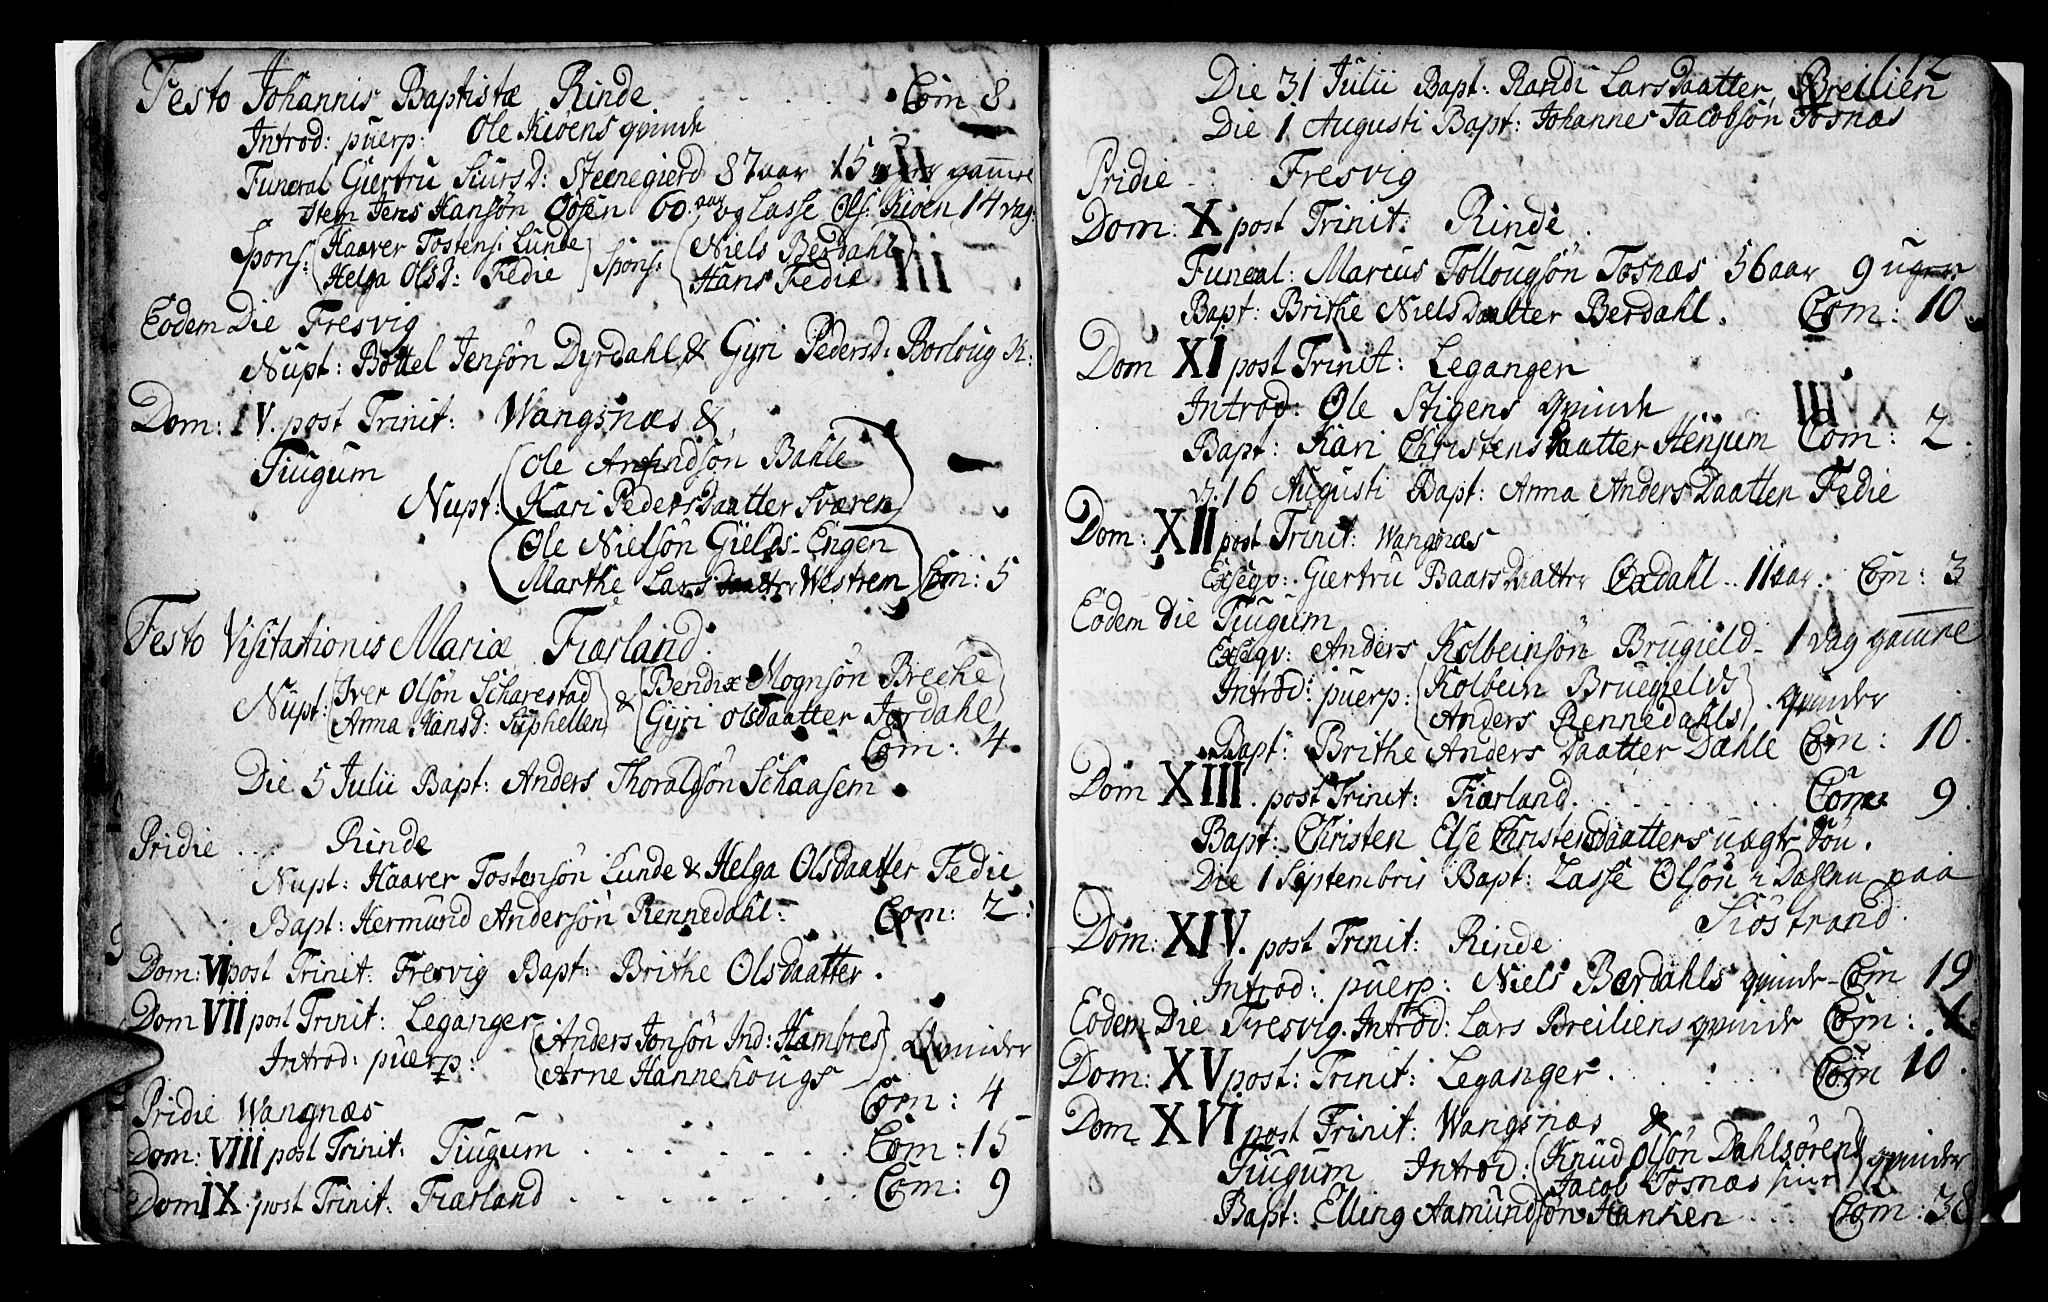 Festo Johannis Baptistæ Rinde . . . . . Com 8.
Introd: puerp: Ole Kiøens qvinde
Funeral Giertru Siursd: Steenegierd 87 aar 15 uger gamel
Item Jens Hansøn 60. aar og Lasse Ols: Kiøen 14 dag:
Spons: (Haaver Tostens: Lunde Spons: (Niels Berdahl)
Helga Olsd: Fedie Hans Fedie
Eodem Die Fresvig
Nupt: Bottel Jensøn Dyrdahl & Gyri Pedersd: Borloug K:
Dom: IV. post Trinit: Wangsnæs &
Tiugum (Ole Anfindsøn Bahle
Nupt: Kari Pedersdaatter Sværen)
(Ole Nielsøn Gields-Engen
Marthe Lars daatter Westrem) Com: 5
Festo Visitationis Mariæ Fiærland.
Nupt: (Iver Olsøn Scharestad & (Bendix Mognsøn Brecke
Anna Hansd: Suphellen) Gyri Olsdaatter Jordahl)
Com: 4.
Die 5 Julii Bapt: Anders Thoraldsøn Schaasem.
Pridie .... Rinde
Nupt: Haaver Tostensøn Lunde & Helga Olsdaatter Fedie
Bapt: Hermund Andersøn Rennedahl: Com: 2:
Dom: VI post Trinit: Fresvig Bapt: Brithe Olsdaatter.
Dom VII post Trinit: Leganger
Introd: puerp: (Anders Jonsøn Ind: Hambres) Qvinder
Arne Hannehougs
Com: 4
Pridie Wangnæs
Dom: VIII post Trinit: Tiugum . . . . . . . Com: 15
Dom IX. post Trinit: Fiærland . . . . . . . Com: 9
12
Die 31 Julii Bapt: Randi Larsdaatter Breilien
Die 1 Augusti Bapt: Johannes Jacobsøn Tosnæs
Pridie ... Fresvig
Dom: X post Trinit: Rinde.
Funeral: Marcus Tollougsøn Tosnæs 56 aar 9 uger
Bapt: Brithe Nielsdaatter Berdahl. Com: 10.
Dom XI post Trinit: Leganger
Introd: Ole Stigens qvinde
Bapt: Kari Christensdaatter Henjum Com: 2.
d. 16 Augusti Bapt: Anna Anders Daatter Fedie
Dom: XII post Trinit: Wangnæs
Exseqv: Giertru Baarsdaatter Oxdahl .. 11 aar. Com: 3
Eodem Die Tiugum
Exseqv: Anders Kolbeinsøn Brugield - 1 dag gamle
Introd: puerp: (Kolbein Bruegields
Anders Rennedahls) qvinder
Bapt: Brithe Anders Daatter Dahle Com: 10.
Dom XIII. post Trinit: Fiærland . . . . . . Com: 9.
Bapt: Christen Else Christensdaatters uægte Søn.
Die 1 Septembris Bapt: Lasse Olsøn paa
Siøstrand.
Dom: XIV. post Trinit: Rinde
Introd: puerp: Niels Bærdahls qvinde - Com 19
Eodem Die Fresvig. Introd: Lars Breiliens qvinde Com: 4.
Dom: XV post: Trinit: Leganger . . . . Com 10.
Dom XVI post Trinit: Wangsnæs &
Tiugum Introd: (Knud Olsøn Dahlsørens) qvinder
Jacob Tosnæs
Bapt: Elling Aamundsøn Hanken ... Com: 38